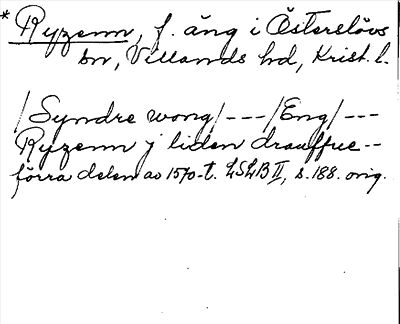 * Ryzenn, f. äng i Österslövs
sn, Villands hd, Krist. l.
/Syndre wong/ --- /Eng/ ---
Ryzenn j liden drauffue --
förra delen av 1570-t. LSLB II, s. 188. orig.